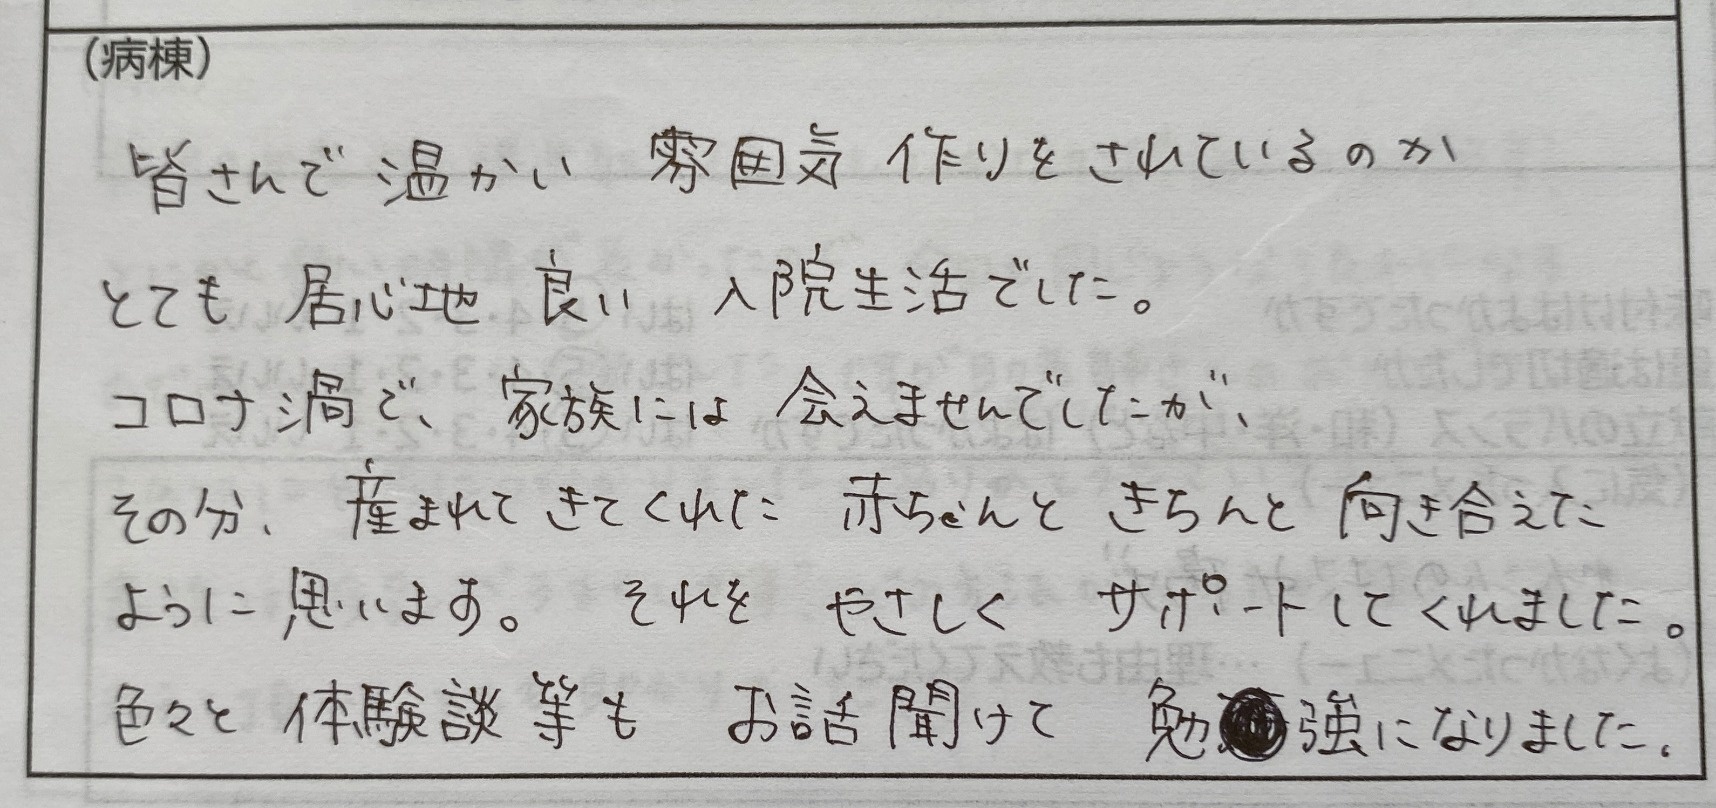 (病棟)
皆さんで温かい 雰囲気 作りをされているのか
とても 居心地 良い 入院生活でした。
コロナ渦で、家族には 会えませんでしたが、
その分、産まれてきてくれた 赤ちゃんと きちんと 向き合えた
ように思います。それを やさしく サポートしてくれました。
色々と 体験談等も お話聞けて 勉強になりました。